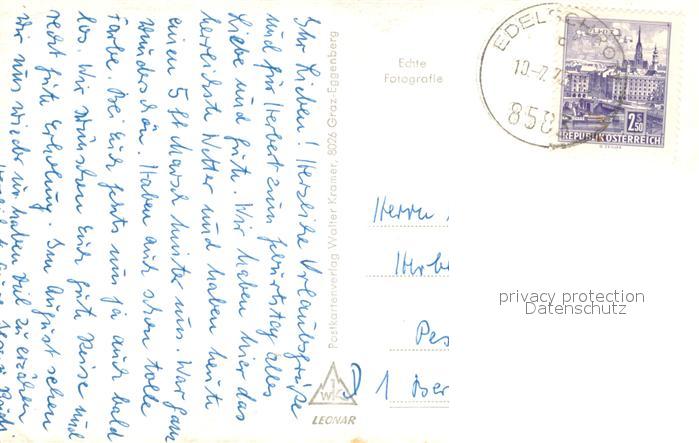 Ihr Lieben! Herzliche Urlaubsgrüße
und für Herbert zum Geburtstag alles
Liebe und Gute. Wir haben hier das
herrlichste Wetter und haben heute
einen 5 St Marsch hinter uns. War ganz
wunderschön. Haben auch schon tolle
Farbe. Bei Euch gehts nun ja auch bald
los. Wir wünschen Euch gute Reise und
recht gute Erholung. Im August sehen
wir uns wieder wir haben viel zu erzählen
Postkartenverlag Walter Kramer, 8026 Graz-Eggenberg
LEONAR
Echte
Fotografie
EDELSCHRO
10.-7.7
858
2.50
REPUBLIK ÖSTERREICH
Herrn
Herbe
Pes
D 1 Ber
privacy protection
Datenschutz